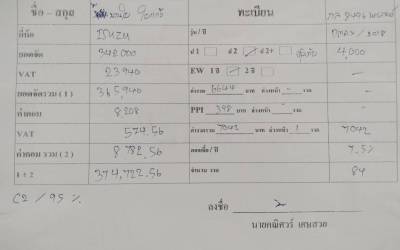 ชื่อ - สกุล ทะเบียน
ยี่ห้อ ISUZU รุ่น / ปี DMAX / 2018
ยอดจัด 342,000 ป1 ป2 ป2+ 4,000
VAT 23,940 EW 1ปี 2ปี -
ยอดจัดรวม ( 1 ) 365,940 ค่างวด 6644 บาท ล่วงหน้า - งวด -
ค่าคอม 8,208 PPI 398 บาท ล่วงหน้า - งวด
VAT 574.56 ค่างวดรวม 7042 บาท ล่วงหน้า 1 งวด 7042
ค่าคอม รวม ( 2 ) 8,782.56 ดอกเบี้ย / ปี 7.5%
1 + 2 374,722.56 จำนวน งวด 84
C2 / 95 %
ลงชื่อ
นายคณิศวร์ เศษสวย